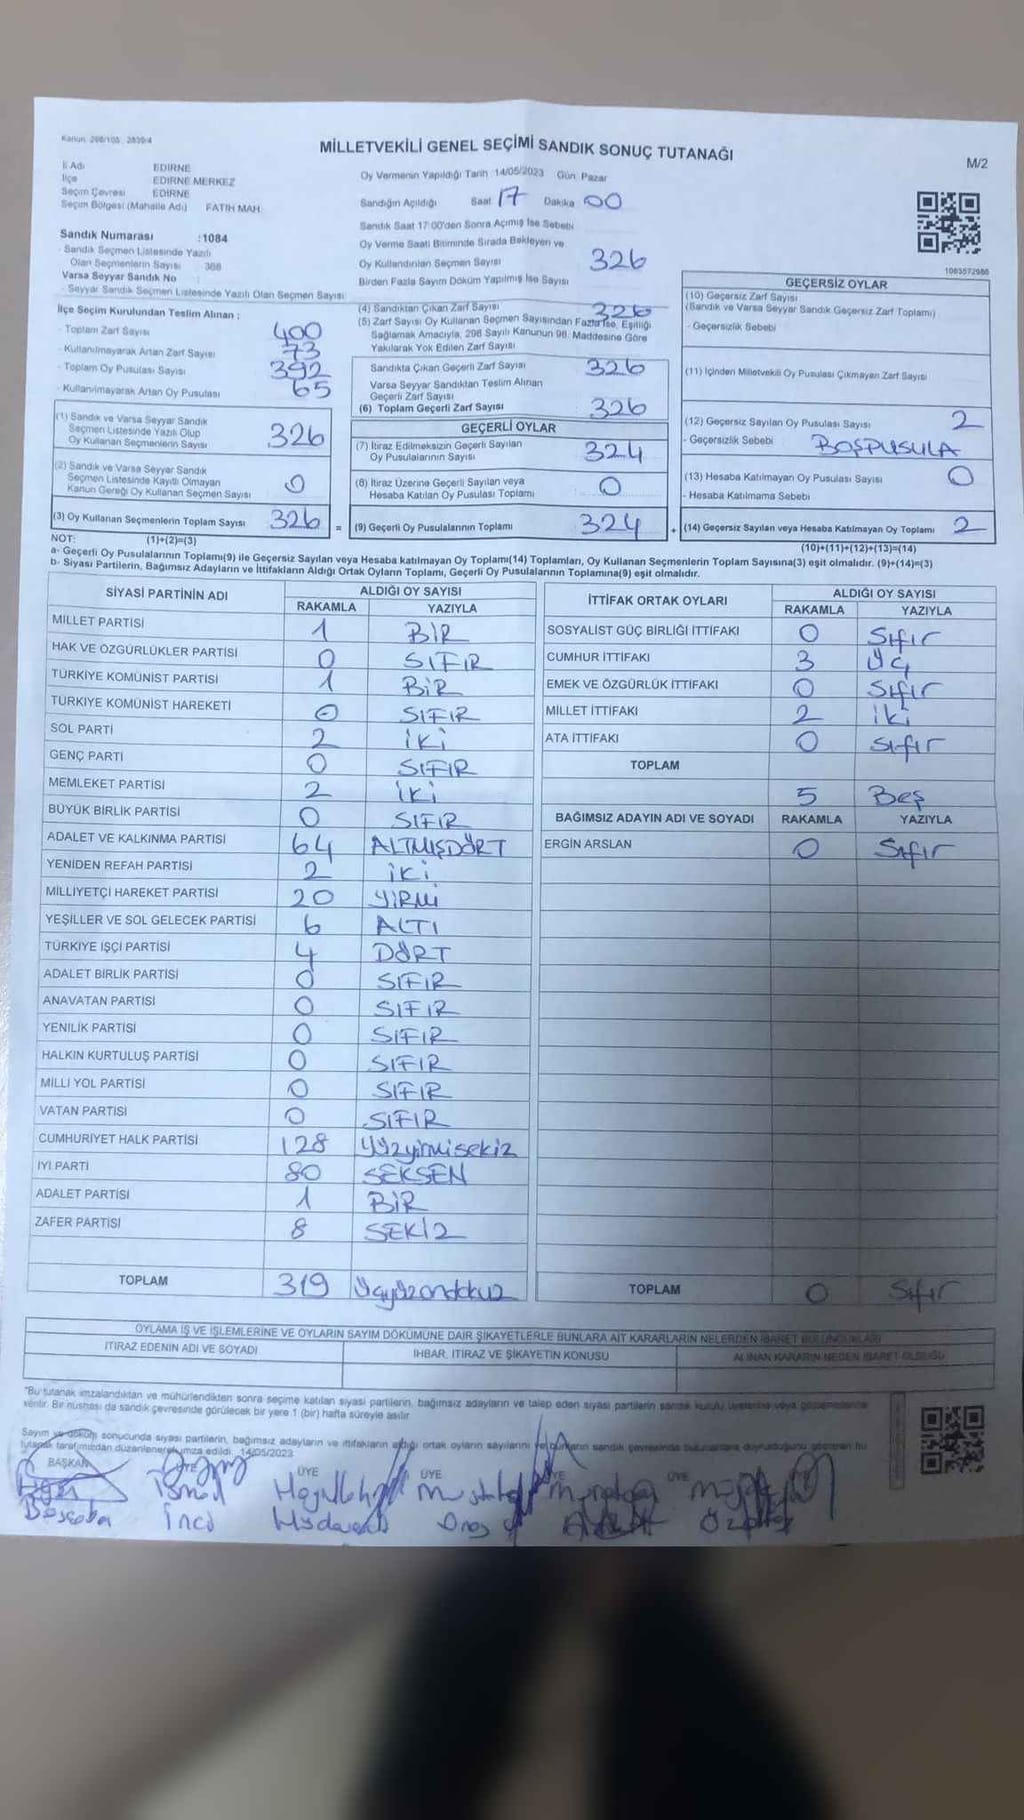 Kanun: 298/105 2839/4
MİLLETVEKİLİ GENEL SEÇİMİ SANDIK SONUÇ TUTANAĞI
M/2
İl Adı EDİRNE
İlçe EDİRNE MERKEZ
Seçim Çevresi EDİRNE
Seçim Bölgesi (Mahalle Adı) FATİH MAH.
Sandık Numarası :1084
- Sandık Seçmen Listesinde Yazılı
Olan Seçmenlerin Sayısı
Varsa Seyyar Sandık No
- Seyyar Sandık Seçmen Listesinde Yazılı Olan Seçmen Sayısı
Oy Vermenin Yapıldığı Tarih 14/05/2023 Gün Pazar
Sandığın Açıldığı Saat 17 Dakika 00
Sandık Saat 17:00'den Sonra Açılmış İse Sebebi
Oy Verme Saati Bitiminde Sırada Bekleyen ve
Oy Kullandırılan Seçmen Sayısı 326
Birden Fazla Sayım Döküm Yapılmış İse Sayısı
1083572986
İlçe Seçim Kurulundan Teslim Alınan :
- Toplam Zarf Sayısı 400
- Kullanılmayarak Artan Zarf Sayısı 73
- Toplam Oy Pusulası Sayısı 392
- Kullanılmayarak Artan Oy Pusulası 65
(1) Sandık ve Varsa Seyyar Sandık
Seçmen Listesinde Yazılı Olup
Oy Kullanan Seçmenlerin Sayısı 326
(2) Sandık ve Varsa Seyyar Sandık
Seçmen Listesinde Kayıtlı Olmayan
Kanun Gereği Oy Kullanan Seçmen Sayısı 0
(3) Oy Kullanan Seçmenlerin Toplam Sayısı 326 =
(4) Sandıktan Çıkan Zarf Sayısı 326
(5) Zarf Sayısı Oy Kullanan Seçmen Sayısından Fazla İse, Eşitliği
Sağlamak Amacıyla, 298 Sayılı Kanunun 98. Maddesine Göre
Yakılarak Yok Edilen Zarf Sayısı
Sandıkta Çıkan Geçerli Zarf Sayısı 326
Varsa Seyyar Sandıktan Teslim Alınan
Geçerli Zarf Sayısı
(6) Toplam Geçerli Zarf Sayısı 326
GEÇERLİ OYLAR
(7) İtiraz Edilmeksizin Geçerli Sayılan
Oy Pusulalarının Sayısı 324
(8) İtiraz Üzerine Geçerli Sayılan veya
Hesaba Katılan Oy Pusulası Toplamı 0
(9) Geçerli Oy Pusulalarının Toplamı 324 +
GEÇERSİZ OYLAR
(10) Geçersiz Zarf Sayısı
(Sandık ve Varsa Seyyar Sandık Geçersiz Zarf Toplamı)
- Geçersizlik Sebebi
(11) İçinden Milletvekili Oy Pusulası Çıkmayan Zarf Sayısı
(12) Geçersiz Sayılan Oy Pusulası Sayısı 2
- Geçersizlik Sebebi BOŞPUSULA
(13) Hesaba Katılmayan Oy Pusulası Sayısı 0
- Hesaba Katılmama Sebebi
(14) Geçersiz Sayılan veya Hesaba Katılmayan Oy Toplamı 2
NOT: (1)+(2)=(3) (10)+(11)+(12)+(13)=(14)
a- Geçerli Oy Pusulalarının Toplamı(9) ile Geçersiz Sayılan veya Hesaba katılmayan Oy Toplam(14) Toplamları, Oy Kullanan Seçmenlerin Toplam Sayısına(3) eşit olmalıdır. (9)+(14)=(3)
b- Siyasi Partilerin, Bağımsız Adayların ve İttifakların Aldığı Ortak Oyların Toplamı, Geçerli Oy Pusulalarının Toplamına(9) eşit olmalıdır.
SİYASİ PARTİNİN ADI ALDIĞI OY SAYISI
RAKAMLA YAZIYLA
MİLLET PARTİSİ 1 BİR
HAK VE ÖZGÜRLÜKLER PARTİSİ 0 SIFIR
TÜRKİYE KOMÜNİST PARTİSİ 1 BİR
TÜRKİYE KOMÜNİST HAREKETİ 0 SIFIR
SOL PARTİ 2 İKİ
GENÇ PARTİ 0 SIFIR
MEMLEKET PARTİSİ 2 İKİ
BÜYÜK BİRLİK PARTİSİ 0 SIFIR
ADALET VE KALKINMA PARTİSİ 64 ALTMIŞDÖRT
YENİDEN REFAH PARTİSİ 2 İKİ
MİLLİYETÇİ HAREKET PARTİSİ 20 YİRMİ
YEŞİLLER VE SOL GELECEK PARTİSİ 6 ALTI
TÜRKİYE İŞÇİ PARTİSİ 4 DÖRT
ADALET BİRLİK PARTİSİ 0 SIFIR
ANAVATAN PARTİSİ 0 SIFIR
YENİLİK PARTİSİ 0 SIFIR
HALKIN KURTULUŞ PARTİSİ 0 SIFIR
MİLLİ YOL PARTİSİ 0 SIFIR
VATAN PARTİSİ 0 SIFIR
CUMHURİYET HALK PARTİSİ 128 Yüzyirmisekiz
İYİ PARTİ 80 SEKSEN
ADALET PARTİSİ 1 BİR
ZAFER PARTİSİ 8 SEKİZ
TOPLAM 319 Üçyüzondokuz
İTTİFAK ORTAK OYLARI ALDIĞI OY SAYISI
RAKAMLA YAZIYLA
SOSYALİST GÜÇ BİRLİĞİ İTTİFAKI 0 Sıfır
CUMHUR İTTİFAKI 3 Üç
EMEK VE ÖZGÜRLÜK İTTİFAKI 0 Sıfır
MİLLET İTTİFAKI 2 iki
ATA İTTİFAKI 0 Sıfır
TOPLAM
5 Beş
BAĞIMSIZ ADAYIN ADI VE SOYADI RAKAMLA YAZIYLA
ERGİN ARSLAN 0 Sıfır
TOPLAM 0 Sıfır
OYLAMA İŞ VE İŞLEMLERİNE VE OYLARIN SAYIM DÖKÜMÜNE DAİR ŞİKAYETLERLE BUNLARA AİT KARARLARIN NELERDEN İBARET BULUNDUKLARI
İTİRAZ EDENİN ADI VE SOYADI İHBAR, İTİRAZ VE ŞİKAYETİN KONUSU ALINAN KARARIN NEDEN İBARET OLDUĞU
"Bu tutanak imzalandıktan ve mühürlendikten sonra seçime katılan siyasi partilerin, bağımsız adayların ve talep eden siyasi partilerin sandık kurulu üyelerine veya gözlemcilerine
verilir. Bir nüshası da sandık çevresinde görülecek bir yere 1 (bir) hafta süreyle asılır.
Sayım ve döküm sonucunda siyasi partilerin, bağımsız adayların ve ittifakların aldığı ortak oyların sayılarını
tutanak tarafımızdan düzenlenerek imza edildi. 14/05/2023
BAŞKAN ÜYE ÜYE ÜYE ÜYE ÜYE
İsmail
İnci